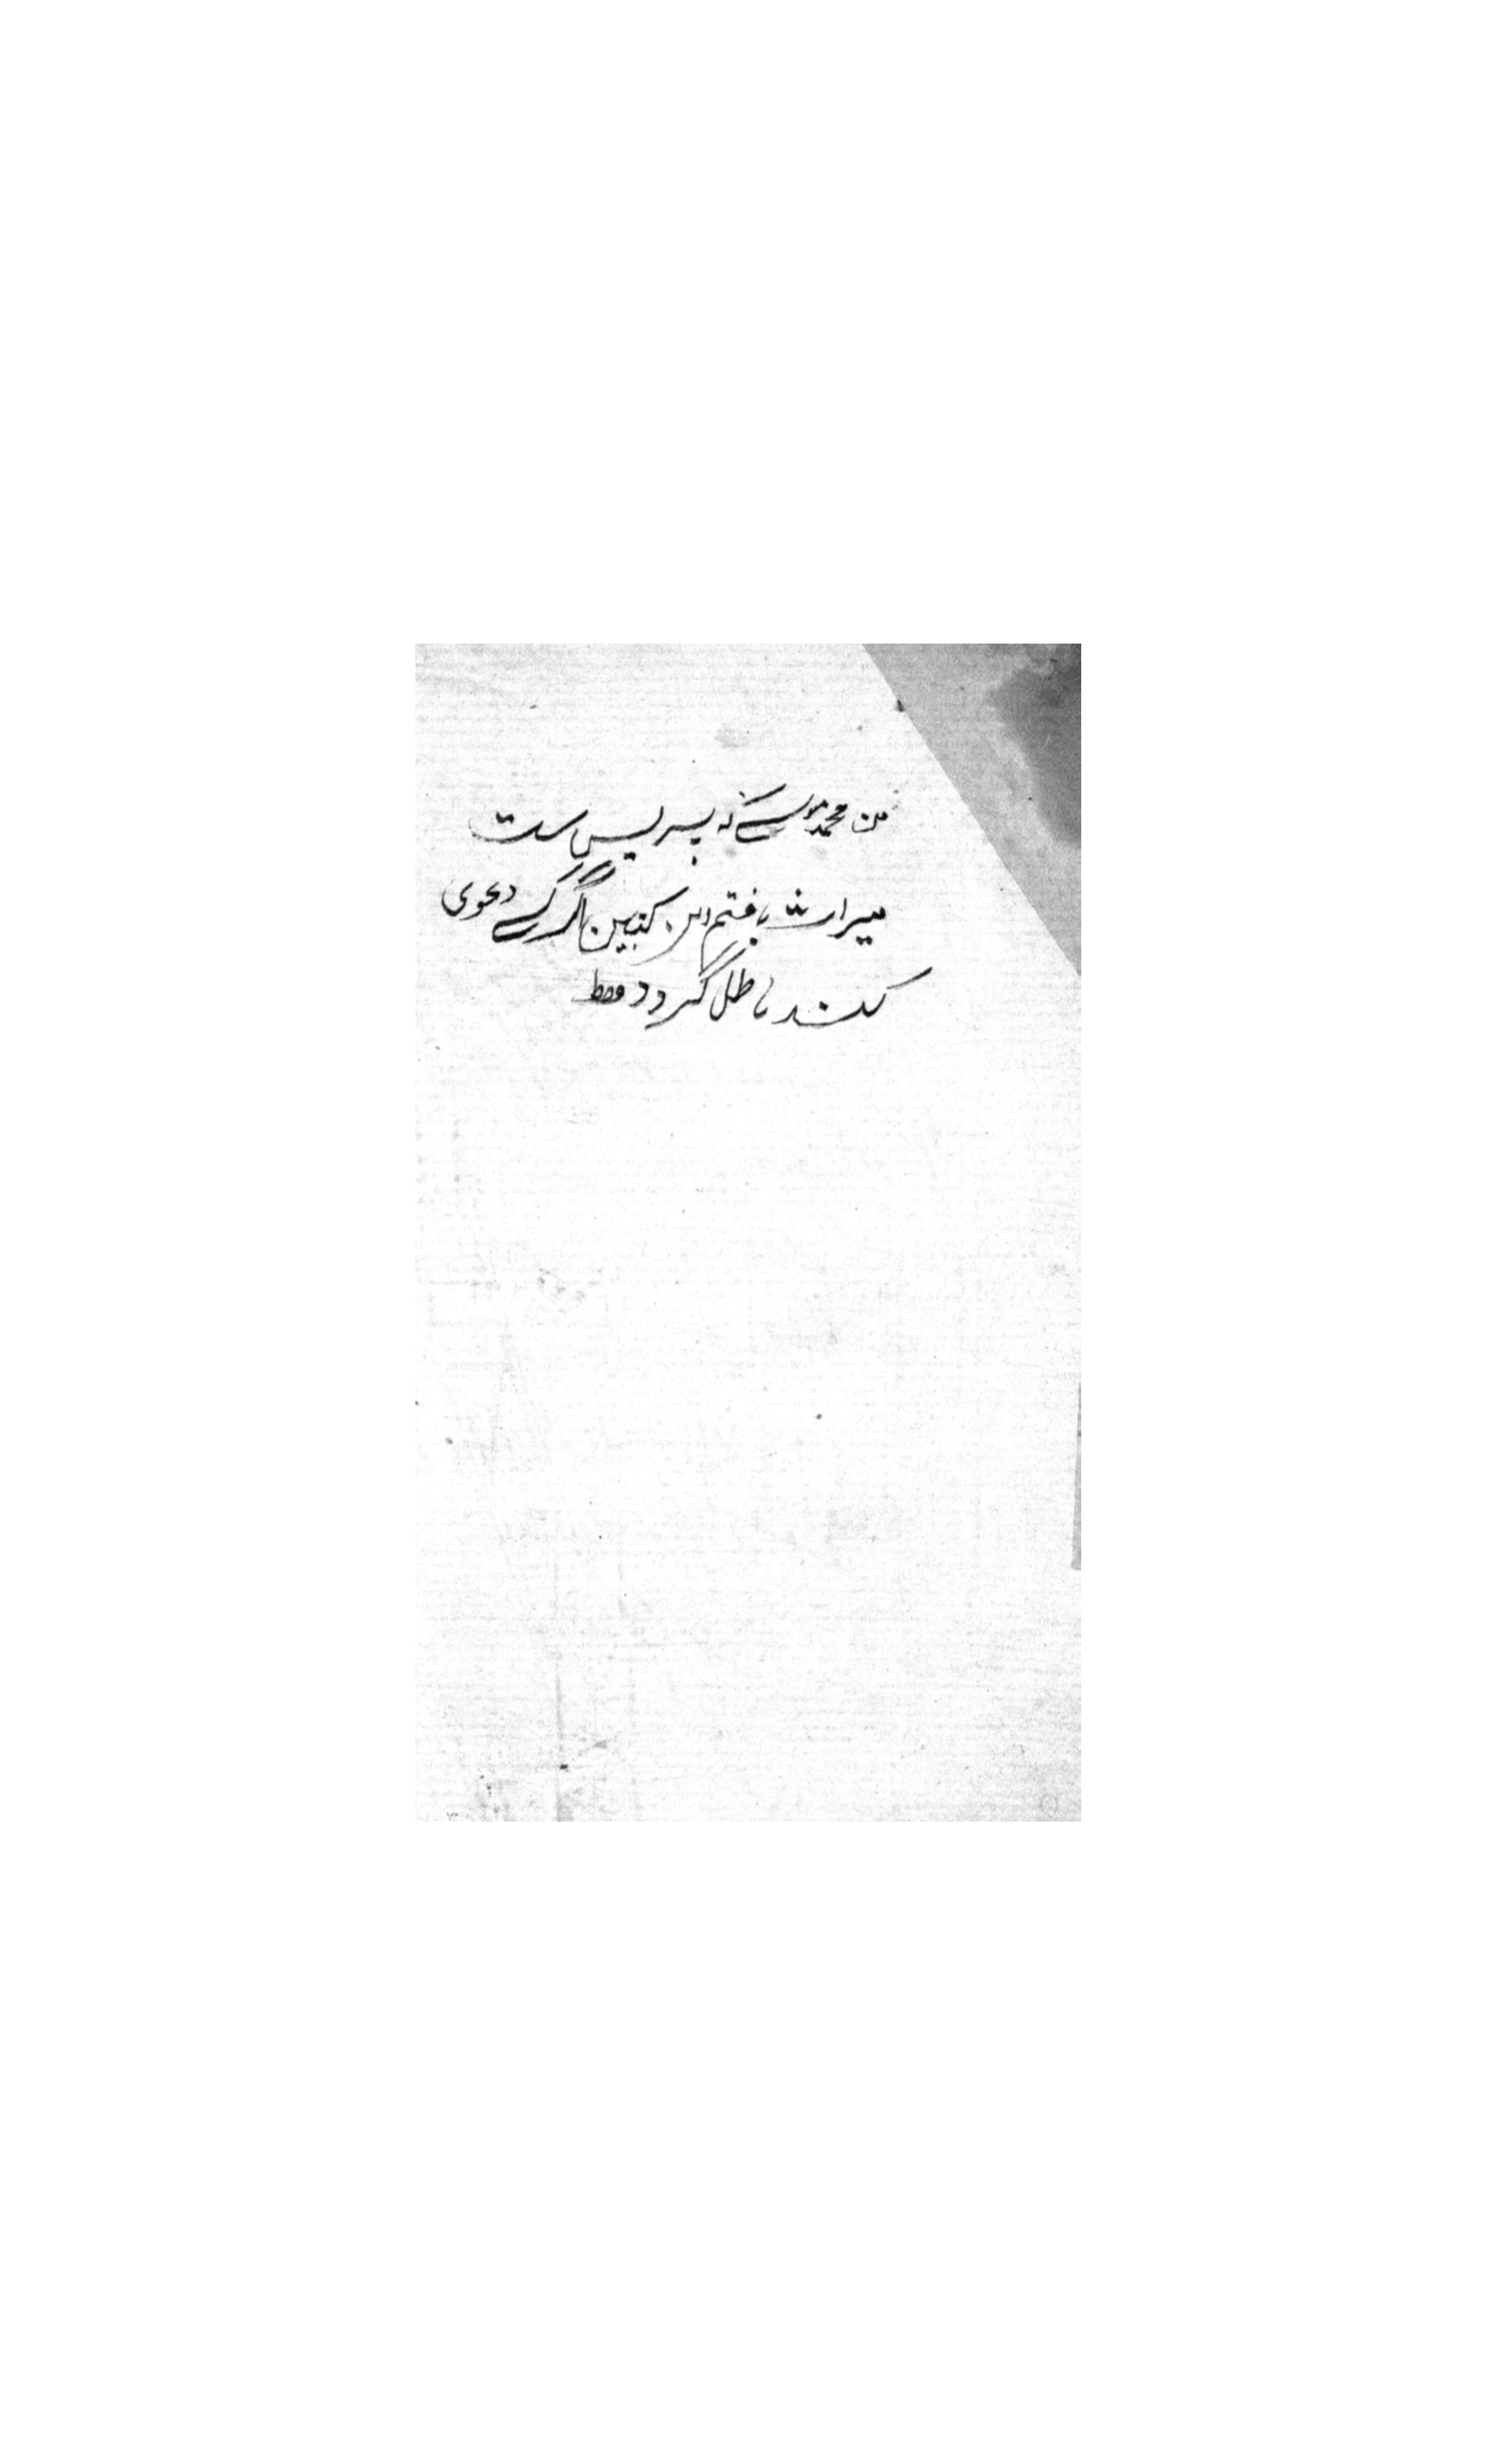 من محمد موسے که پسر یس است
میراث یافتم این کتابین اگر کسے دعوی
کند باطل گردد فقط